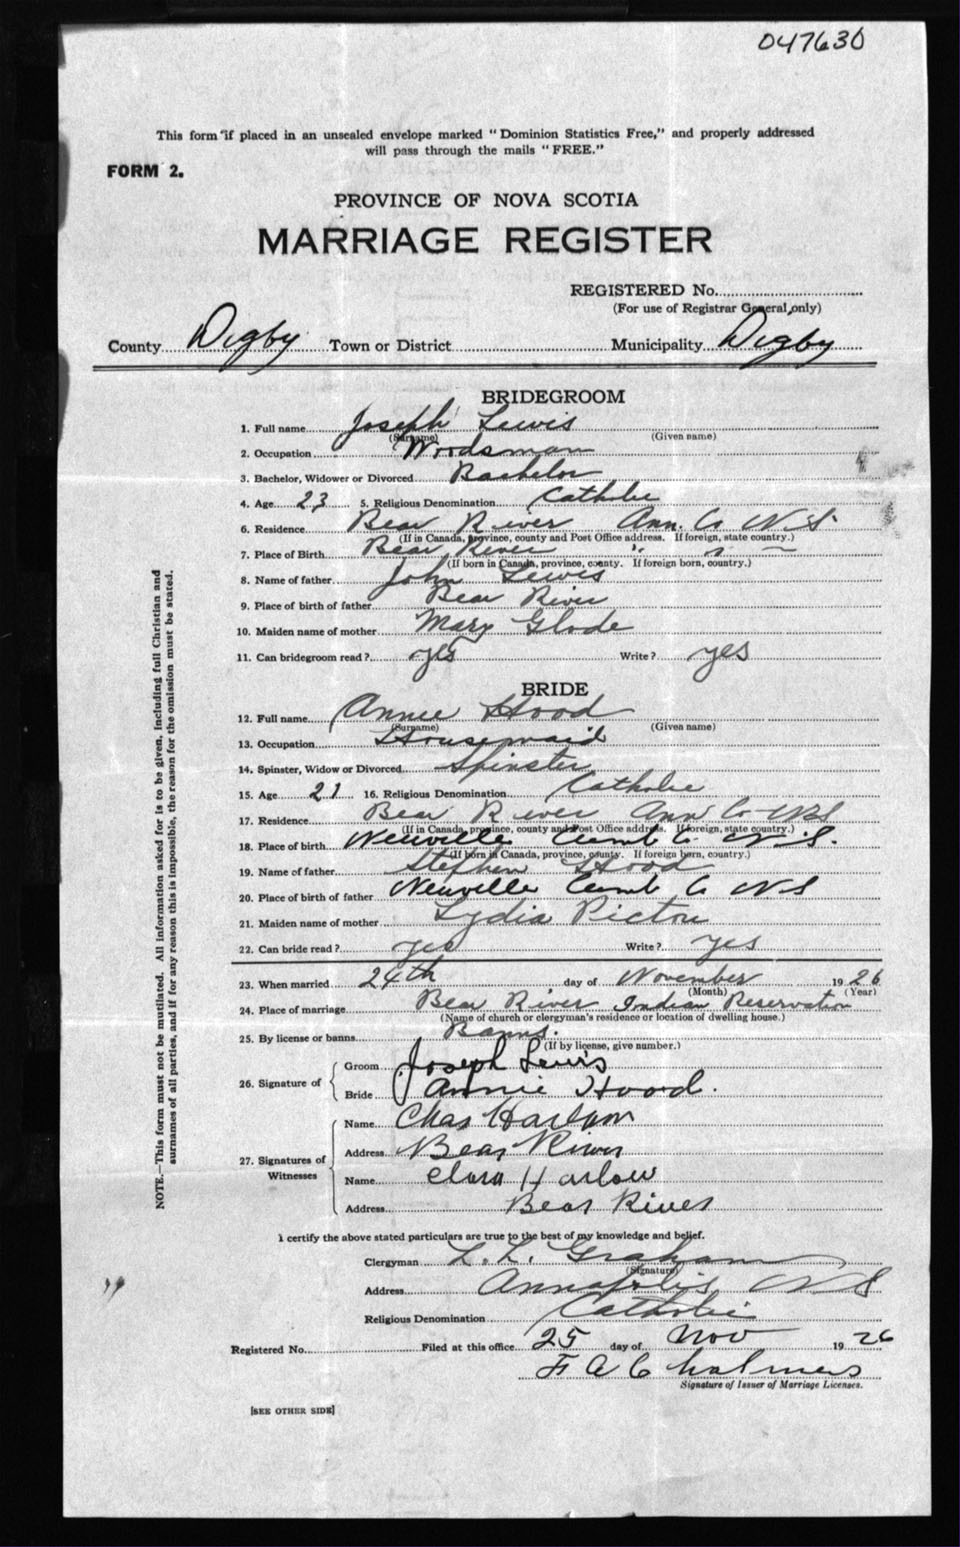 047630
This form if placed in an unsealed envelope marked "Dominion Statistics Free," and properly addressed
will pass through the mails "FREE."
FORM 2.
PROVINCE OF NOVA SCOTIA
MARRIAGE REGISTER
REGISTERED No.
(For use of Registrar General only)
County Digby Town or District Municipality Digby
BRIDEGROOM
1. Full name Joseph Lewis
(Surname) (Given name)
2. Occupation Woodsman
3. Bachelor, Widower or Divorced Bachelor
4. Age 23 5. Religious Denomination Catholic
6. Residence Bear River Ann. Co N.S.
(If in Canada, province, county and Post Office address. If foreign, state country.)
7. Place of Birth Bear River " " "
(If born in Canada, province, county. If foreign born, country.)
8. Name of father John Lewis
9. Place of birth of father Bear River
10. Maiden name of mother Mary Glode
11. Can bridegroom read? yes Write? yes
BRIDE
12. Full name Annie Hood
(Surname) (Given name)
13. Occupation Housemaid
14. Spinster, Widow or Divorced Spinster
15. Age 21 16. Religious Denomination Catholic
17. Residence Bear River Ann Co NS
(If in Canada, province, county and Post Office address. If foreign, state country.)
18. Place of birth Newville Cumb Co N.S.
(If born in Canada, province, county. If foreign born, country.)
19. Name of father Stephen Hood
20. Place of birth of father Newville Cumb Co NS
21. Maiden name of mother Lydia Pictou
22. Can bride read? yes Write? yes
23. When married 24th day of November 1926
(Month) (Year)
24. Place of marriage Bear River Indian Reservation
(Name of church or clergyman's residence or location of dwelling house.)
25. By license or banns Banns.
(If by license, give number.)
26. Signature of
Groom Joseph Lewis
Bride Annie Hood.
27. Signatures of Witnesses
Name Chas Harlow
Address Bear River
Name Clara Harlow
Address Bear River
I certify the above stated particulars are true to the best of my knowledge and belief.
Clergyman L. L. Graham
(Signature)
Address Annapolis N S
Religious Denomination Catholic
Registered No. Filed at this office 25 day of Nov 1926
F A Chalmers
Signature of Issuer of Marriage Licenses.
[SEE OTHER SIDE]
NOTE.—This form must not be mutilated. All information asked for is to be given, including full Christian and
surnames of all parties, and if for any reason this is impossible, the reason for the omission must be stated.